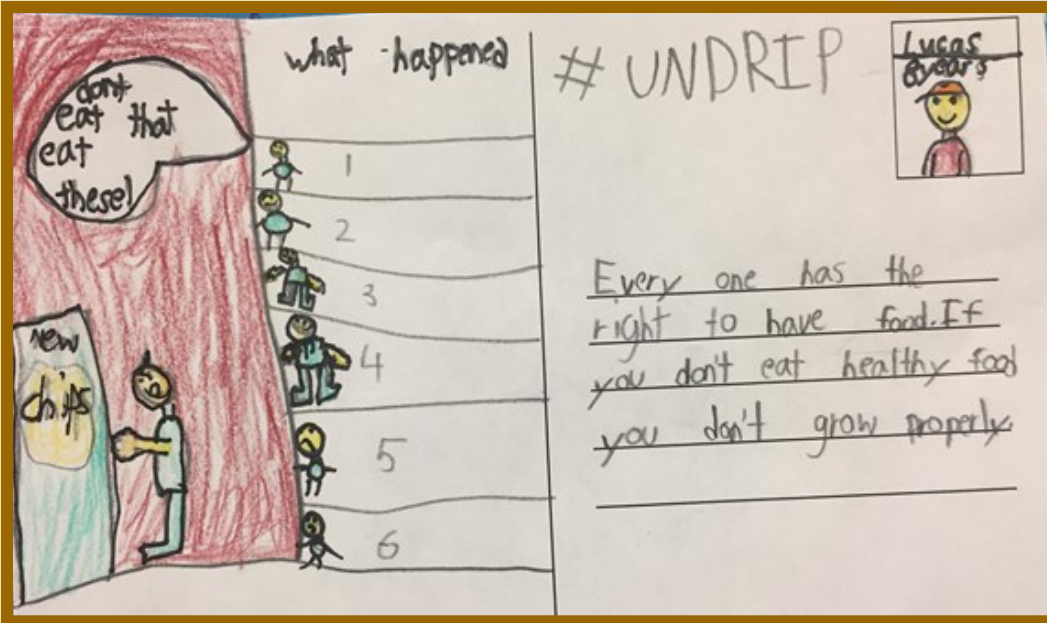 don't
eat that
eat
these!
new
chips
what happened
1
2
3
4
5
6
# UNDRIP
Lucas
8years
Every one has the
right to have food. If
you don't eat healthy food
you don't grow properly.